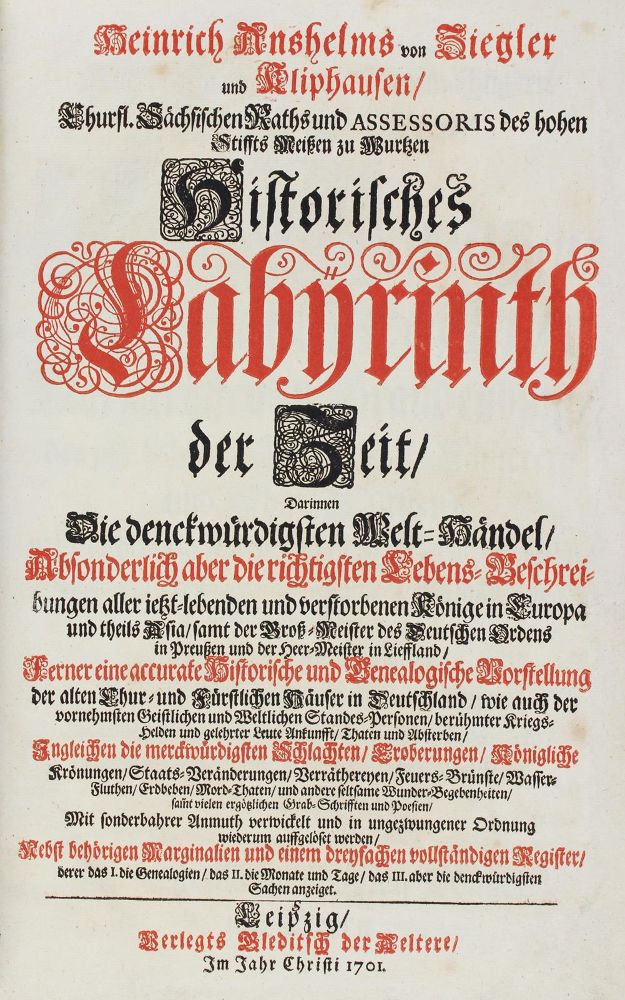 Heinrich Anshelms von Ziegler
und Kliphausen/
Churfl. Sächsischen Raths und ASSESSORIS des hohen
Stiffts Meißen zu Wurtzen
Historisches
Labÿrinth
der Zeit/
Darinnen
Die denckwürdigsten Welt-Händel/
Absonderlich aber die richtigsten Lebens-Beschrei-
bungen aller ietzt-lebenden und verstorbenen Könige in Europa
und theils Asia/ samt der Groß-Meister des Deutschen Ordens
in Preußen und der Heer-Meister in Liefland/
Ferner eine accurate Historische und Genealogische Vorstellung
der alten Chur- und Fürstlichen Häuser in Deutschland/ wie auch der
vornehmsten Geistlichen und Weltlichen Standes-Personen/ berühmter Kriegs-
Helden und gelehrter Leute Ankunfft/ Thaten und Absterben/
Ingleichen die merckwürdigsten Schlachten/ Eroberungen/ Königliche
Krönungen/ Staats-Veränderungen/ Verräthereyen/ Feuers-Brünste/ Wasser-
Fluthen/ Erdbeben/ Mord-Thaten/ und andere seltsame Wunder-Begebenheiten/
samt vielen ergötzlichen Grab-Schrifften und Poesien/
Mit sonderbahrer Anmuth verwickelt und in ungezwungener Ordnung
wiederum auffgelöset werden/
Nebst behörigen Marginalien und einem dreyfachen vollständigen Register/
derer das I. die Genealogien/ das II. die Monate und Tage/ das III. aber die denckwürdigsten
Sachen anzeiget.
Leipzig/
Verlegts Gleditsch der Aeltere/
Im Jahr Christi 1701.